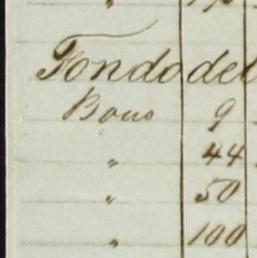 "
Fondo del
Bous 9
" 44
" 50
" 100